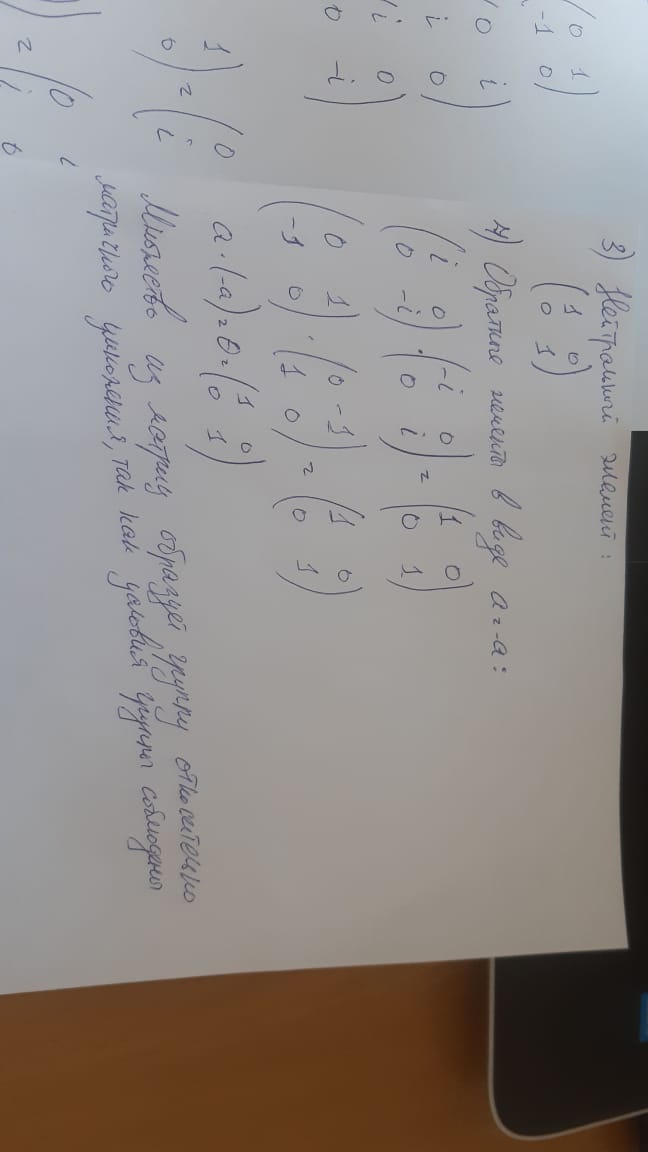 0 1
-1 0
0 i
i 0
i 0
0 -i
1
0 ) = ( 0
i
) = ( 0 i
i 0
3) Нейтральный элемент:
( 1 0
0 1 )
4) Обратные элементы в виде a = -a:
( i 0
0 -i ) · ( -i 0
0 i ) = ( 1 0
0 1 )
( 0 1
-1 0 ) · ( 0 -1
1 0 ) = ( 1 0
0 1 )
a · (-a) = θ = ( 1 0
0 1 )
Множество из матриц образует группу относительно
матричного умножения, так как условия группы соблюдены